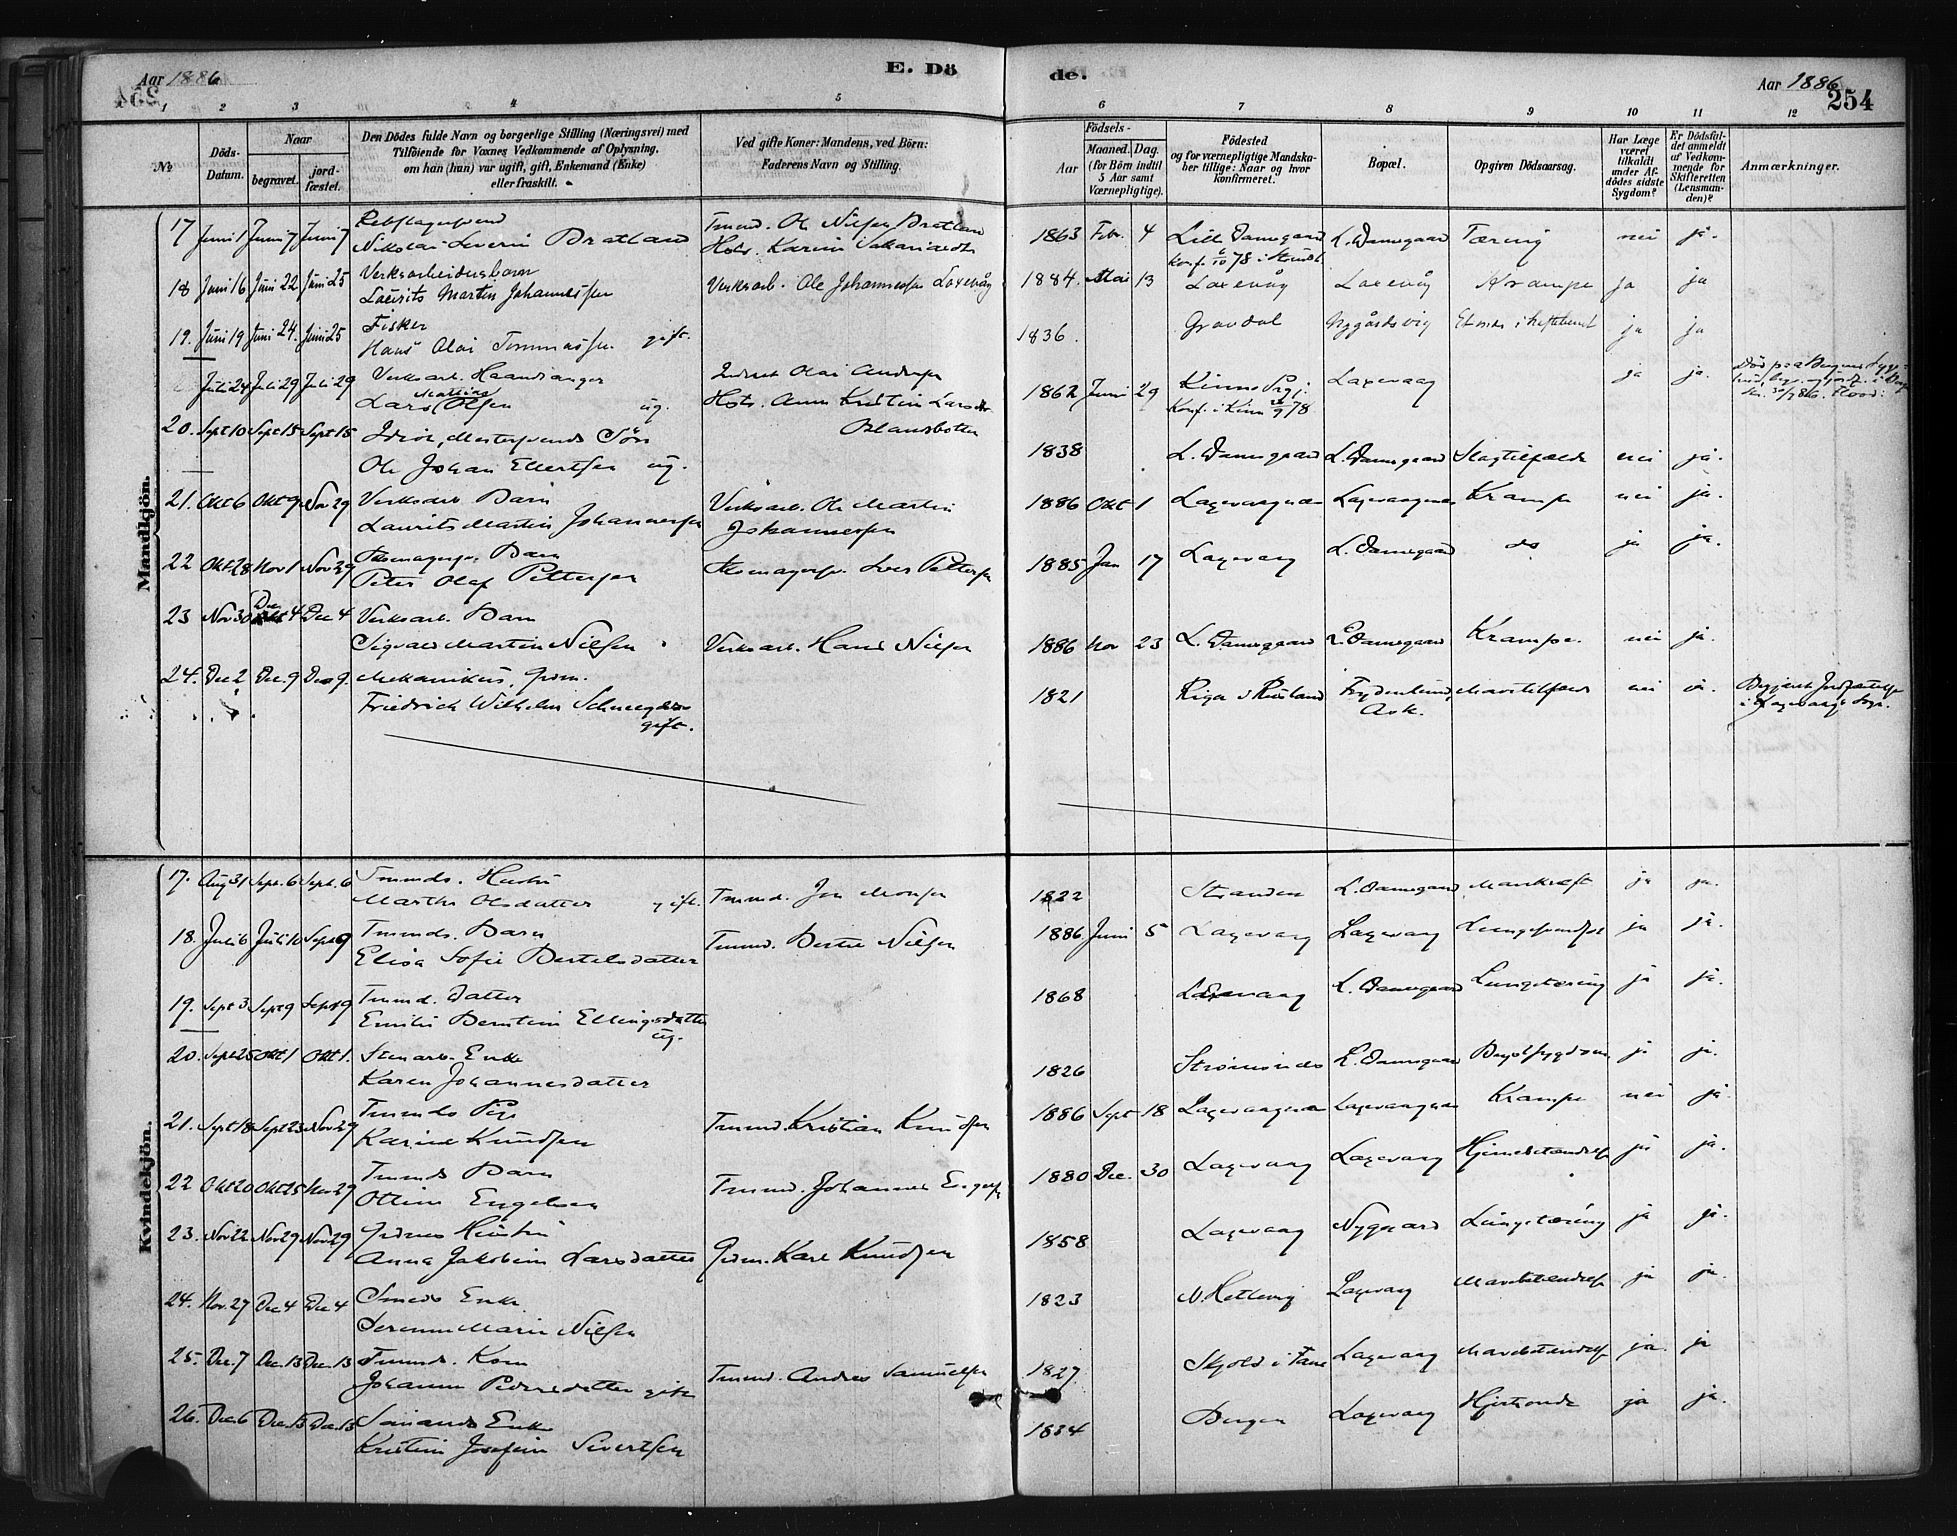 Aar 1886
E. Dö
de.
Aar 1886
254
1 2 3 4 5 6 7 8 9 10 11 12
No
Döds-Datum.
Naar
begravet.
jord-fæstet.
Den Dödes fulde Navn og borgerlige Stilling (Næringsvei) med
Tilföiende for Voxnes Vedkommende af Oplysning,
om han (hun) var ugift, gift, Enkemand (Enke)
eller fraskilt.
Ved gifte Koner: Mandens, ved Börn:
Faderens Navn og Stilling.
Födsels-
Aar
Maaned. Dag.
(for Börn indtil
5 Aar samt
Værnepligtige).
Födested
og for værnepligtige Mandska-
ber tillige: Naar og hvor
konfirmeret.
Bopæl.
Opgiven Dödsaarsag.
Har Læge
været
tilkaldt
under Af-
dödes sidste
Sygdom?
Er Dödsfal-
det anmeldt
af Vedkom-
mende for
Skifteretten
(Lensman-
den)?
Anmærkninger.
Mandkjön.
17 Juni 1 Juni 7 Juni 7
Nikolai Severin Bratland
Tmmd. Ole Nilsen Bratland
1863 Febr. 4 Lille Damsgaard L. Damsgaard Tæring nei ja.
18 Juni 16 Juni 22 Juni 25 Verksarbeidersbarn
Laurits Martin Johannessen
Verksarb. Ole Johannessen Laxevåg
1884. Mai 13 Laxevåg Laxevåg Krampe ja ja
19. Juni 19 Juni 24. Juni 25 Fisker
Hans Olai Tommassen gift.
1836. Gravdal Nygårdsvig ja ja
Juli 24 Juli 29 Juli 29 Verksarb. Haandlanger
Lars Olsen ug.
1862 Juni 29 Kinn Laxevaag ja ja.
Konf. i Kinn 78
20. Sept 10 Sept 15 Sept 15
Ole Johan Ellertsen ug.
1838 L. Damsgaard L. Damsgaard Slagtilfælde nei ja.
21. Okt 6 Okt 9 Nov 29 Verksarb. Barn
Laurits Martin Johannessen
Verksarb. Ole Martin
Johannessen
1886 Okt 1 Laxevaagneset Laxevaagneset Krampe nei ja.
22 Okt 28 Nov 1 Nov 29 Skomagersv. Barn
Peter Olaf Pettersen
1885 Jan 17 Laxevaag L. Damsgaard do ja ja.
23 Nov 30 Dec 4 Dec 4 Verksarb. Barn
Sigvald Martin Nilsen
Verksarb. Hans Nilsen
1886 Nov 23 L. Damsgaard L. Damsgaard Krampe. nei ja.
24. Dec 2 Dec. 9 Dec 9. Mekanikus, Grdm.
Friedrich Wilhelm
gift.
1821 Riga i Rusland Frydenlund, nei
Ask.
Kvindekjön.
17. Aug 31 Sept. 6 Sept. 6 Tmmds. Hustru
Martha Olsdatter gift.
Tmmd. Jon Monsen
1822 Stranden L. Damsgaard ja ja.
18. Juli 6 Juli 10 Sept 9 Tmmds. Barn
Elisa Sofie Bertelsdatter
Tmmd. Bertel Nilsen
1886 Juni 5 Laxevaag Laxevaag ja ja.
19. Sept 3 Sept 9 Sept 9 Tmmd. Datter
Emilie Berntine Ellingsdatter
ug.
1868 Laxevaag L. Damsgaard Lungetæring ja ja.
20. Sept 25 Okt 1 Okt 1. Stenarb. Enke
Karen Johannesdatter
1826 L. Damsgaard Brystsygdom ja ja.
21. Sept 18 Sept 23 Nov 29 Tmmds Pige
Karine Knudsen
Tmmd. Kristian Knudsen
1886 Sept 18 Laxevaagneset Laxevaagneset Krampe nei ja.
22 Okt 20 Okt 25 Nov 29 Tmmds Barn
Ottine Engelsen
1880 Dec. 30 Laxevaag Laxevaag ja ja.
23. Nov 22 Nov 29 Nov 29 Grdms Hustru
Anna Jakobine Larsdatter
Grdm. Karl Knudsen
1858 Laxevaag Nygaard Lungetæring ja ja.
24. Nov. 27 Dec 4 Dec 4 Smeds Enke
Serenne Marie Nilsen
1823 Laxevaag Mavebetændelse ja ja.
25. Dec. 7 Dec 13 Dec 13 Tmmds. Kone
Johanne Pedersdatter gift
Tmmd. Andreas Samuelsen
1827 Skjold i Fane Laxevaag Mavebetændelse ja. ja
26. Dec 6 Dec 13 Dec 13 Sømands Enke
Kristine Josefine Sivertsen
1834 Bergen Laxevaag Hjerteonde ja ja.